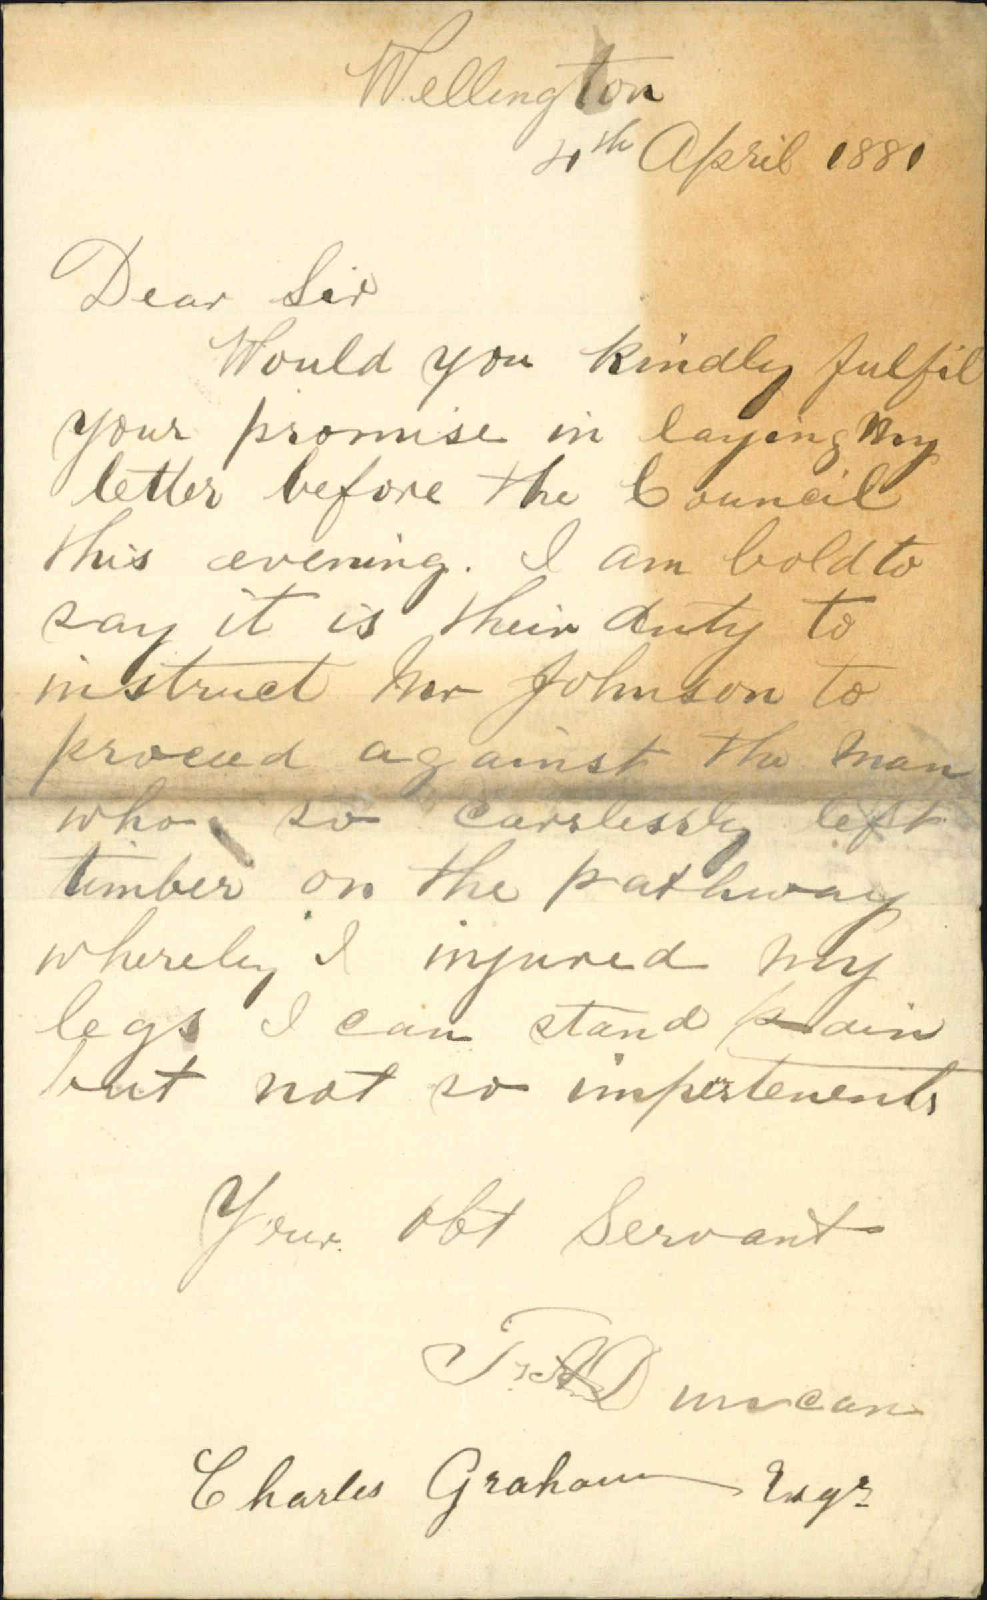 Wellington
4th April 1881
Dear Sir
Would you kindly fulfil
your promise in laying my
letter before the Council
this evening. I am bold to
say it is their duty to
instruct Mr Johnson to
proceed against the man
who so carslessly left
timber on the pathway
whereby I injured my
legs I can stand pain
but not so
Your obt Servant
Duncan
Charles Graham Esqr